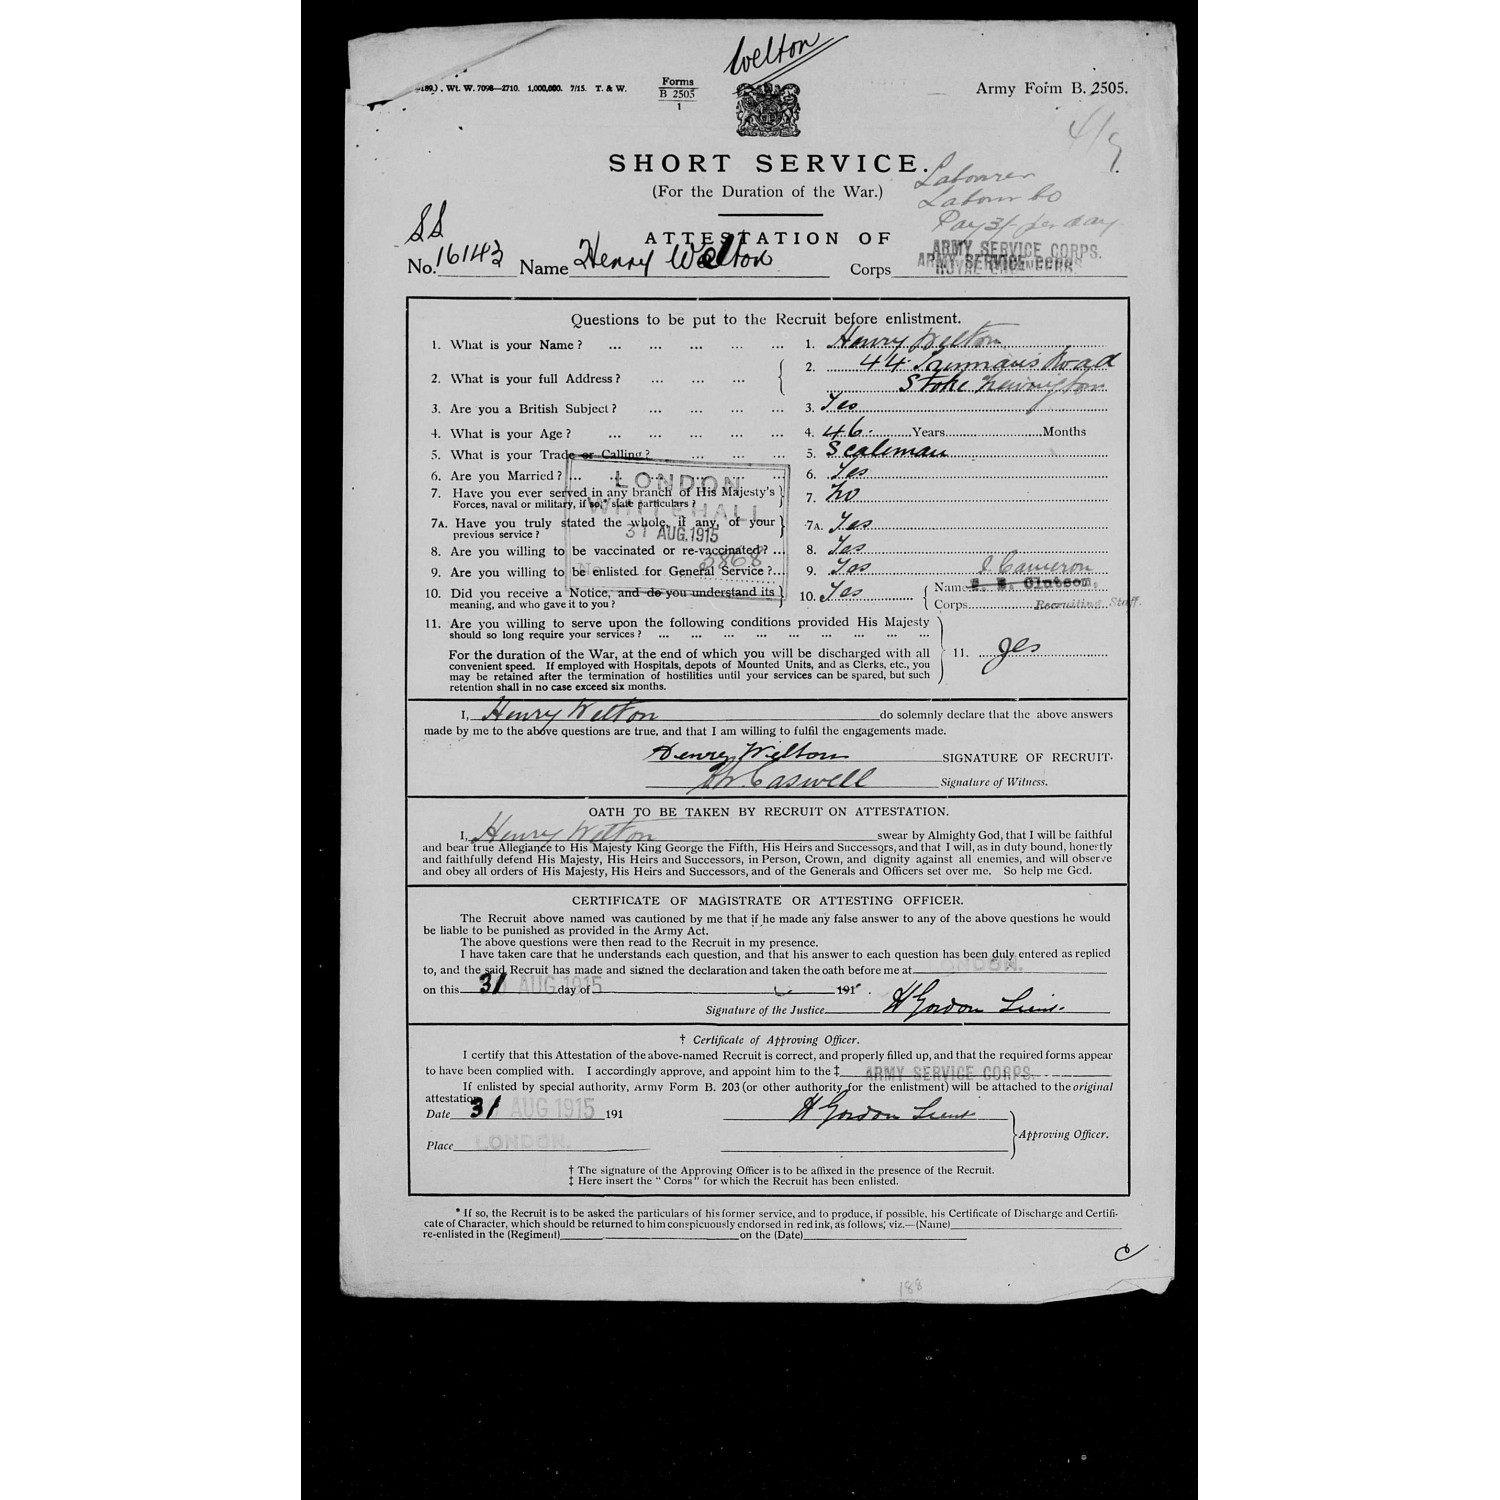 Welton
189.). Wt. W. 7098—2710. 1,000,000. 7/15. T. & W.
Forms
B 2505
1
Army Form B. 2505.
SHORT SERVICE.
(For the Duration of the War.)
Labourer
Labour Co
Pay 3/ per day
ATTESTATION OF
SS
No. 16143 Name Henry Welton Corps ARMY SERVICE CORPS.
ARMY SERVICE CORPS
Questions to be put to the Recruit before enlistment.
1. What is your Name ? ... ... ... ... 1. Henry Welton
2. What is your full Address ? ... ... ... 2. 44 Truman's Road
Stoke Newington
3. Are you a British Subject ? ... ... ... ... 3. Yes
4. What is your Age ? ... ... ... ... 4. 46 Years Months
5. What is your Trade or Calling ? ... ... 5. Scaleman
6. Are you Married ? ... ... ... ... 6. Yes
7. Have you ever served in any branch of His Majesty's
Forces, naval or military, if so,* state particulars ? 7. No
7A. Have you truly stated the whole, if any, of your
previous service ? 7A. Yes
8. Are you willing to be vaccinated or re-vaccinated ? ... 8. Yes
9. Are you willing to be enlisted for General Service ? ... 9. Yes
10. Did you receive a Notice, and do you understand its
meaning, and who gave it to you ? 10. Yes Name J. Cameron
Corps Recruiting Staff.
LONDON
WHITEHALL
31 AUG. 1915
No. 5868
11. Are you willing to serve upon the following conditions provided His Majesty
should so long require your services ? ... ... ... ... ... ... ... ... ...
For the duration of the War, at the end of which you will be discharged with all
convenient speed. If employed with Hospitals, depots of Mounted Units, and as Clerks, etc., you
may be retained after the termination of hostilities until your services can be spared, but such
retention shall in no case exceed six months.
11. yes
I, Henry Welton do solemnly declare that the above answers
made by me to the above questions are true, and that I am willing to fulfil the engagements made.
Henry Welton SIGNATURE OF RECRUIT.
Caswell Signature of Witness.
OATH TO BE TAKEN BY RECRUIT ON ATTESTATION.
I, Henry Welton swear by Almighty God, that I will be faithful
and bear true Allegiance to His Majesty King George the Fifth, His Heirs and Successors, and that I will, as in duty bound, honestly
and faithfully defend His Majesty, His Heirs and Successors, in Person, Crown, and dignity against all enemies, and will observe
and obey all orders of His Majesty, His Heirs and Successors, and of the Generals and Officers set over me. So help me God.
CERTIFICATE OF MAGISTRATE OR ATTESTING OFFICER.
The Recruit above named was cautioned by me that if he made any false answer to any of the above questions he would
be liable to be punished as provided in the Army Act.
The above questions were then read to the Recruit in my presence.
I have taken care that he understands each question, and that his answer to each question has been duly entered as replied
to, and the said Recruit has made and signed the declaration and taken the oath before me at LONDON.
on this 31 AUG 1915 day of 191 .
Signature of the Justice H Gordon Lieut.
† Certificate of Approving Officer.
I certify that this Attestation of the above-named Recruit is correct, and properly filled up, and that the required forms appear
to have been complied with. I accordingly approve, and appoint him to the ‡ ARMY SERVICE CORPS.
If enlisted by special authority, Army Form B. 203 (or other authority for the enlistment) will be attached to the original
attestation
Date 31 AUG 1915 191 H Gordon Lieut
Approving Officer.
Place LONDON.
† The signature of the Approving Officer is to be affixed in the presence of the Recruit.
‡ Here insert the "Corps" for which the Recruit has been enlisted.
* If so, the Recruit is to be asked the particulars of his former service, and to produce, if possible, his Certificate of Discharge and Certifi-
cate of Character, which should be returned to him conspicuously endorsed in red ink, as follows, viz.—(Name)
re-enlisted in the (Regiment) on the (Date)
188